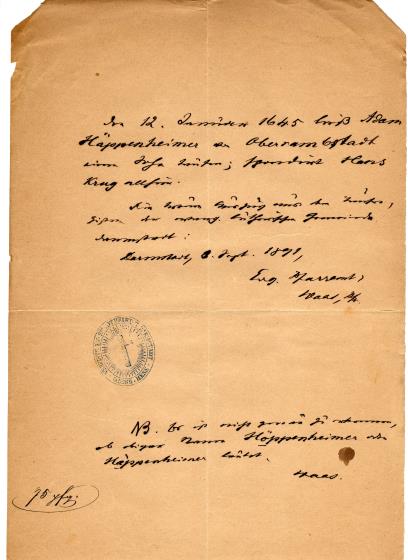 Den 12. Januar 1645 ließ Adam
Häppenheimer von Oberramstadt
einen Sohn taufen; Hans
Krug allhier.
Für den Auszug aus dem Kirchen,
der evang. lutherischen Gemeinde
Darmstadt:
Darmstadt, 8. Sept. 1891,
Ev. Pfarramt,
Waas, Pfr.
NB. Es ist nicht genau zu erkennen,
ob dieser Name Höppenheimer oder
Häppenheimer lautet.
Waas.
90 Pfg.